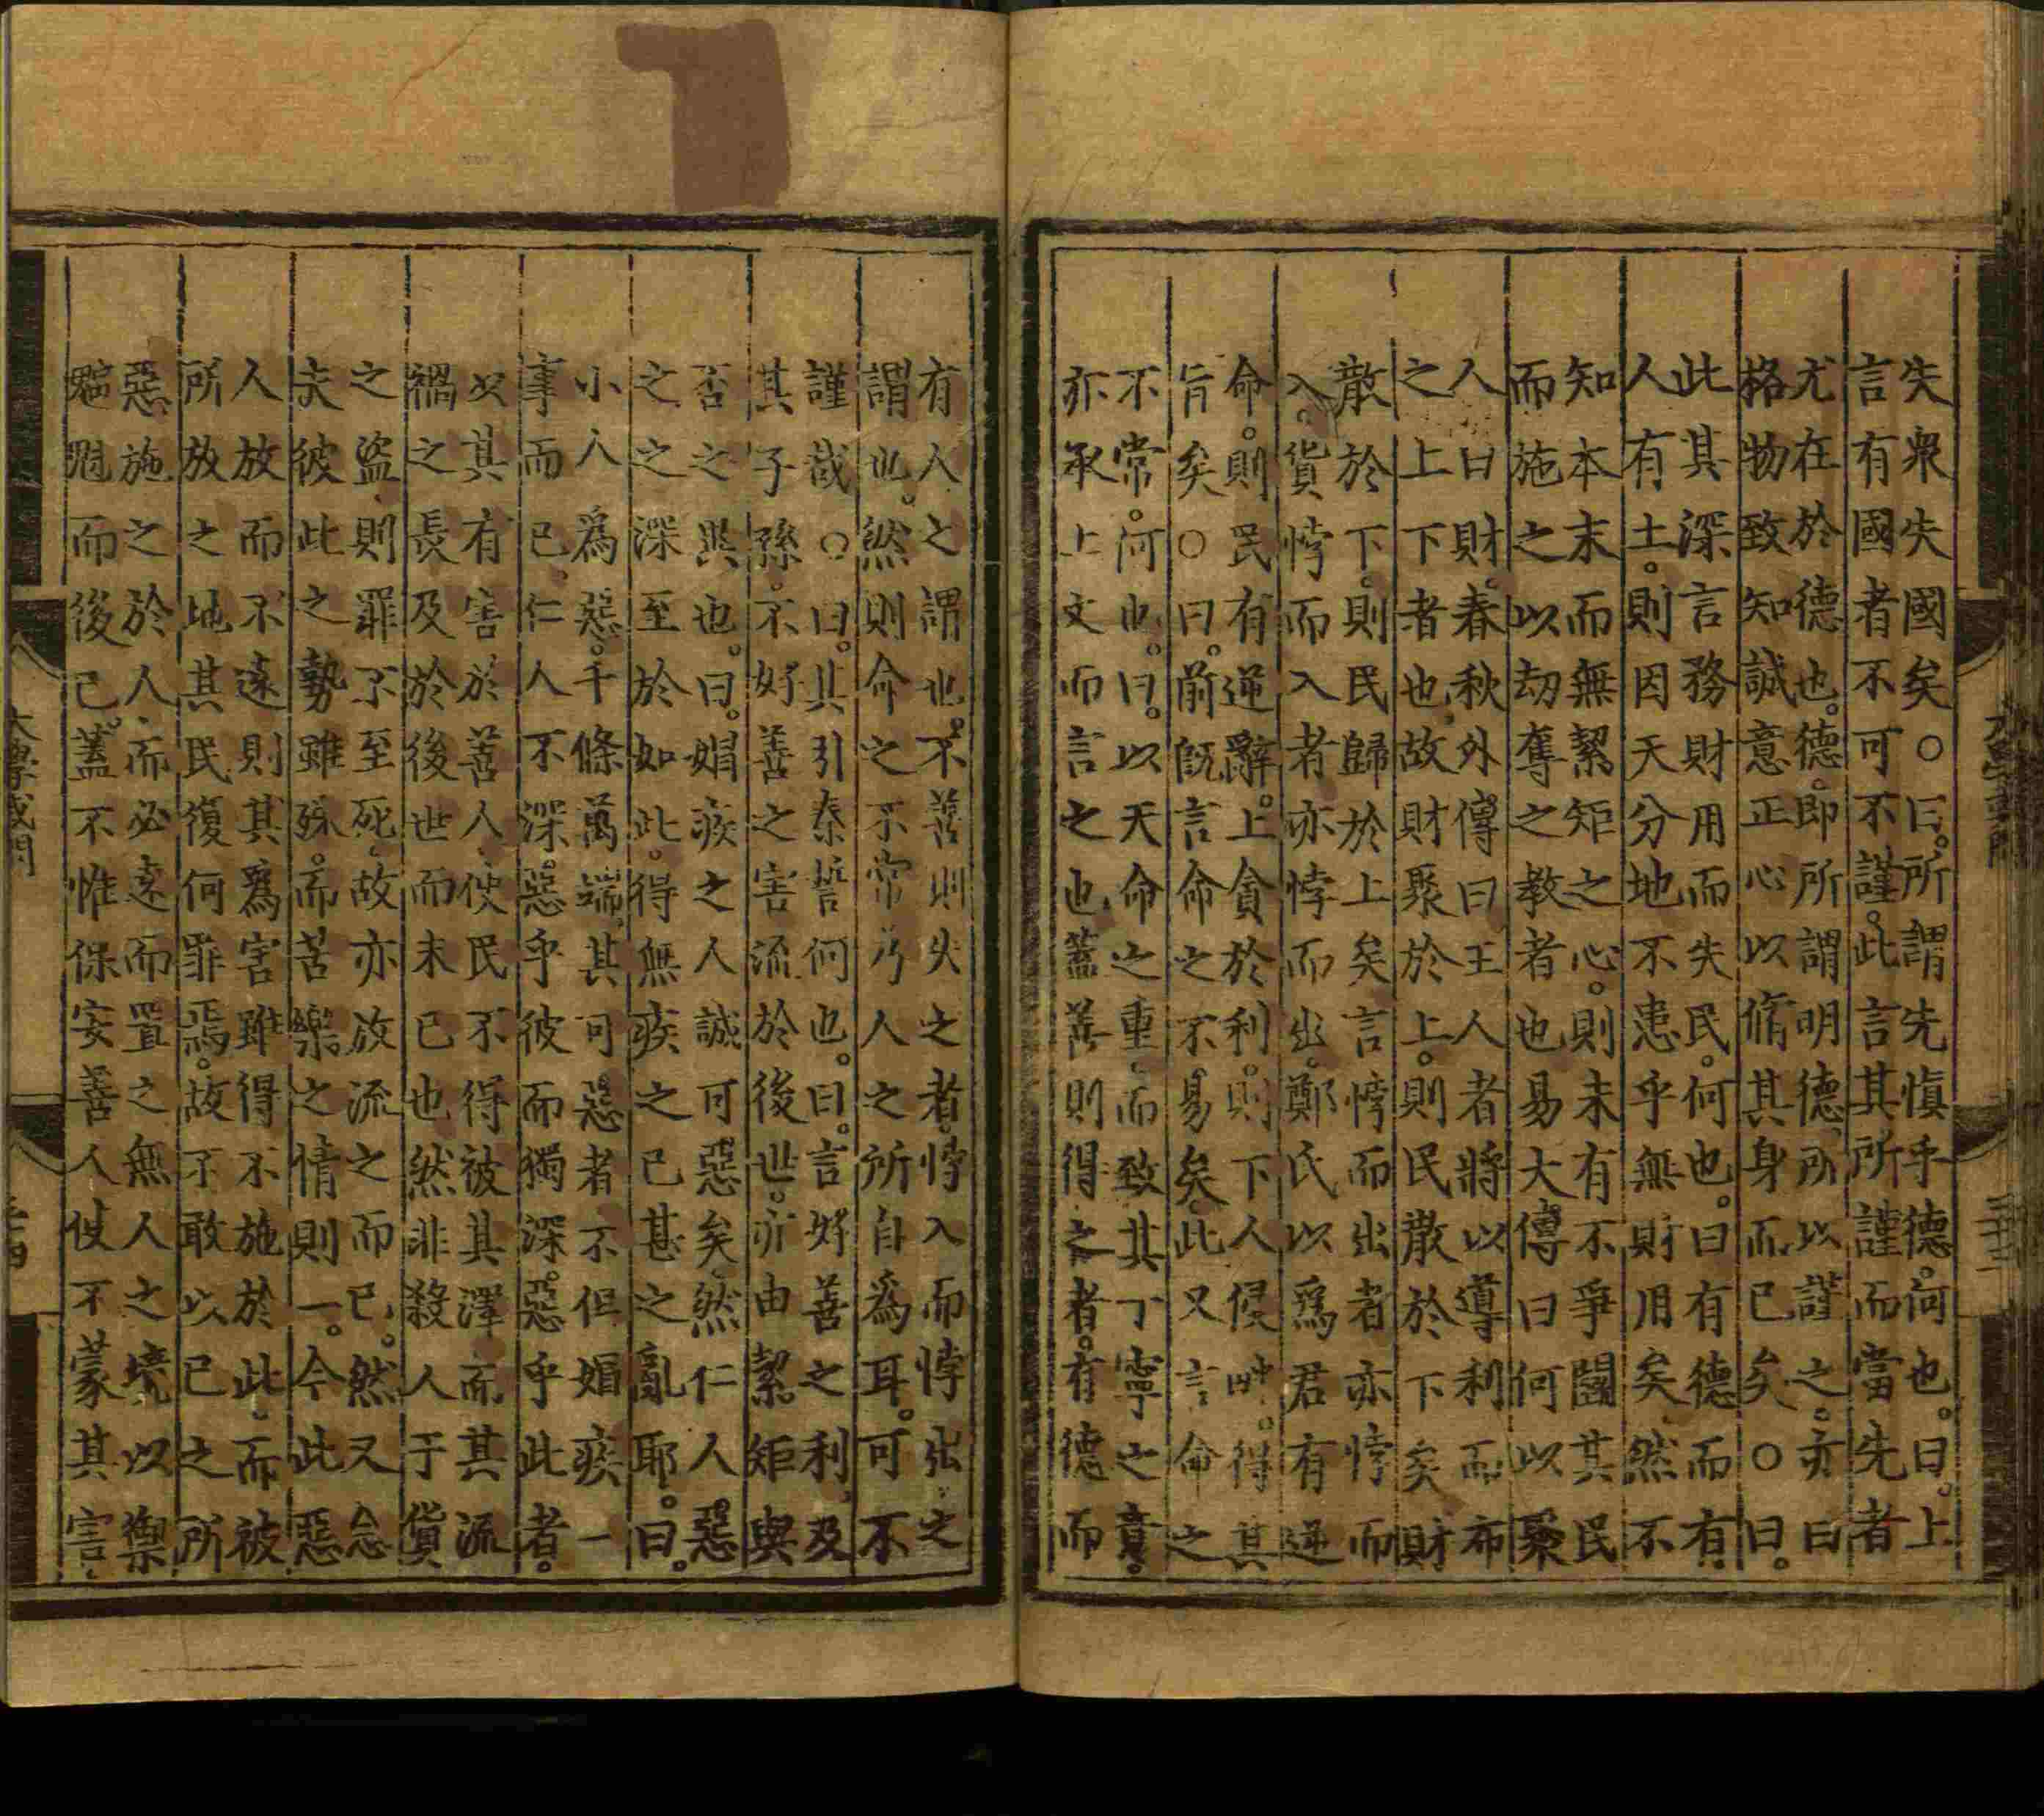 失衆失國矣○曰。所謂先愼乎德。何也。曰。上
言有國者不可不謹。此言其所謹而當先者
尤在於德也。德。即所謂明德、所以謹之。亦曰
格物致知誠意正心以脩其身而已矣○曰。
此其深言務財用而失民。何也。曰有德而有
人有土。則因天分地不患乎無財用矣、然不
知本末而無絜矩之心。則未有不爭鬪其民
而施之以劫奪之教者也易大傳曰何以聚
人曰財。春秋外傳曰王人者將以導利而布
之上下者也、故財聚於上。則民散於下矣財
散於下。則民歸於上矣言悖而出者亦悖而
入。貨悖而入者亦悖而出。鄭氏以爲君有逆
命。則民有逆辭。上貪於利。則下人侵畔。得其
旨矣○曰。前既言命之不易矣、此又言命之
不常。何也。曰。以天命之重、而致其丁寧之意。
亦承上文而言之也、蓋善則得之者。有德而
有人之謂也。不善則失之者。悖入而悖出之
謂也。然則命之不常乃人之所自爲耳。可不
謹哉○曰。其引秦誓何也。曰。言好善之利、及
其子孫。不好善之害流於後世。亦由絜矩與
否之異也。曰。媢疾之人誠可惡矣、然仁人惡
之之深至於如此。得無疾之已甚之亂耶。曰。
小人爲惡。千條萬端、其可惡者不但媢疾一
事而已、仁人不深惡乎彼而獨深惡乎此者。
以其有害於善人、使民不得被其澤而其流
禍之長及於後世而未已也然非殺人于貨
之盜、則罪不至死、故亦放流之而已。然又念
夫彼此之勢雖殊。而苦樂之情則一。今此惡
人放而不遠則其爲害雖得不施於此、而被
所放之地其民復何罪焉。故不敢以己之所
惡、施之於人、而必遠而置之無人之境以禦
魑魅而後已。蓋不惟保安善人使不蒙其害、
大學或問
三十三
大學或問